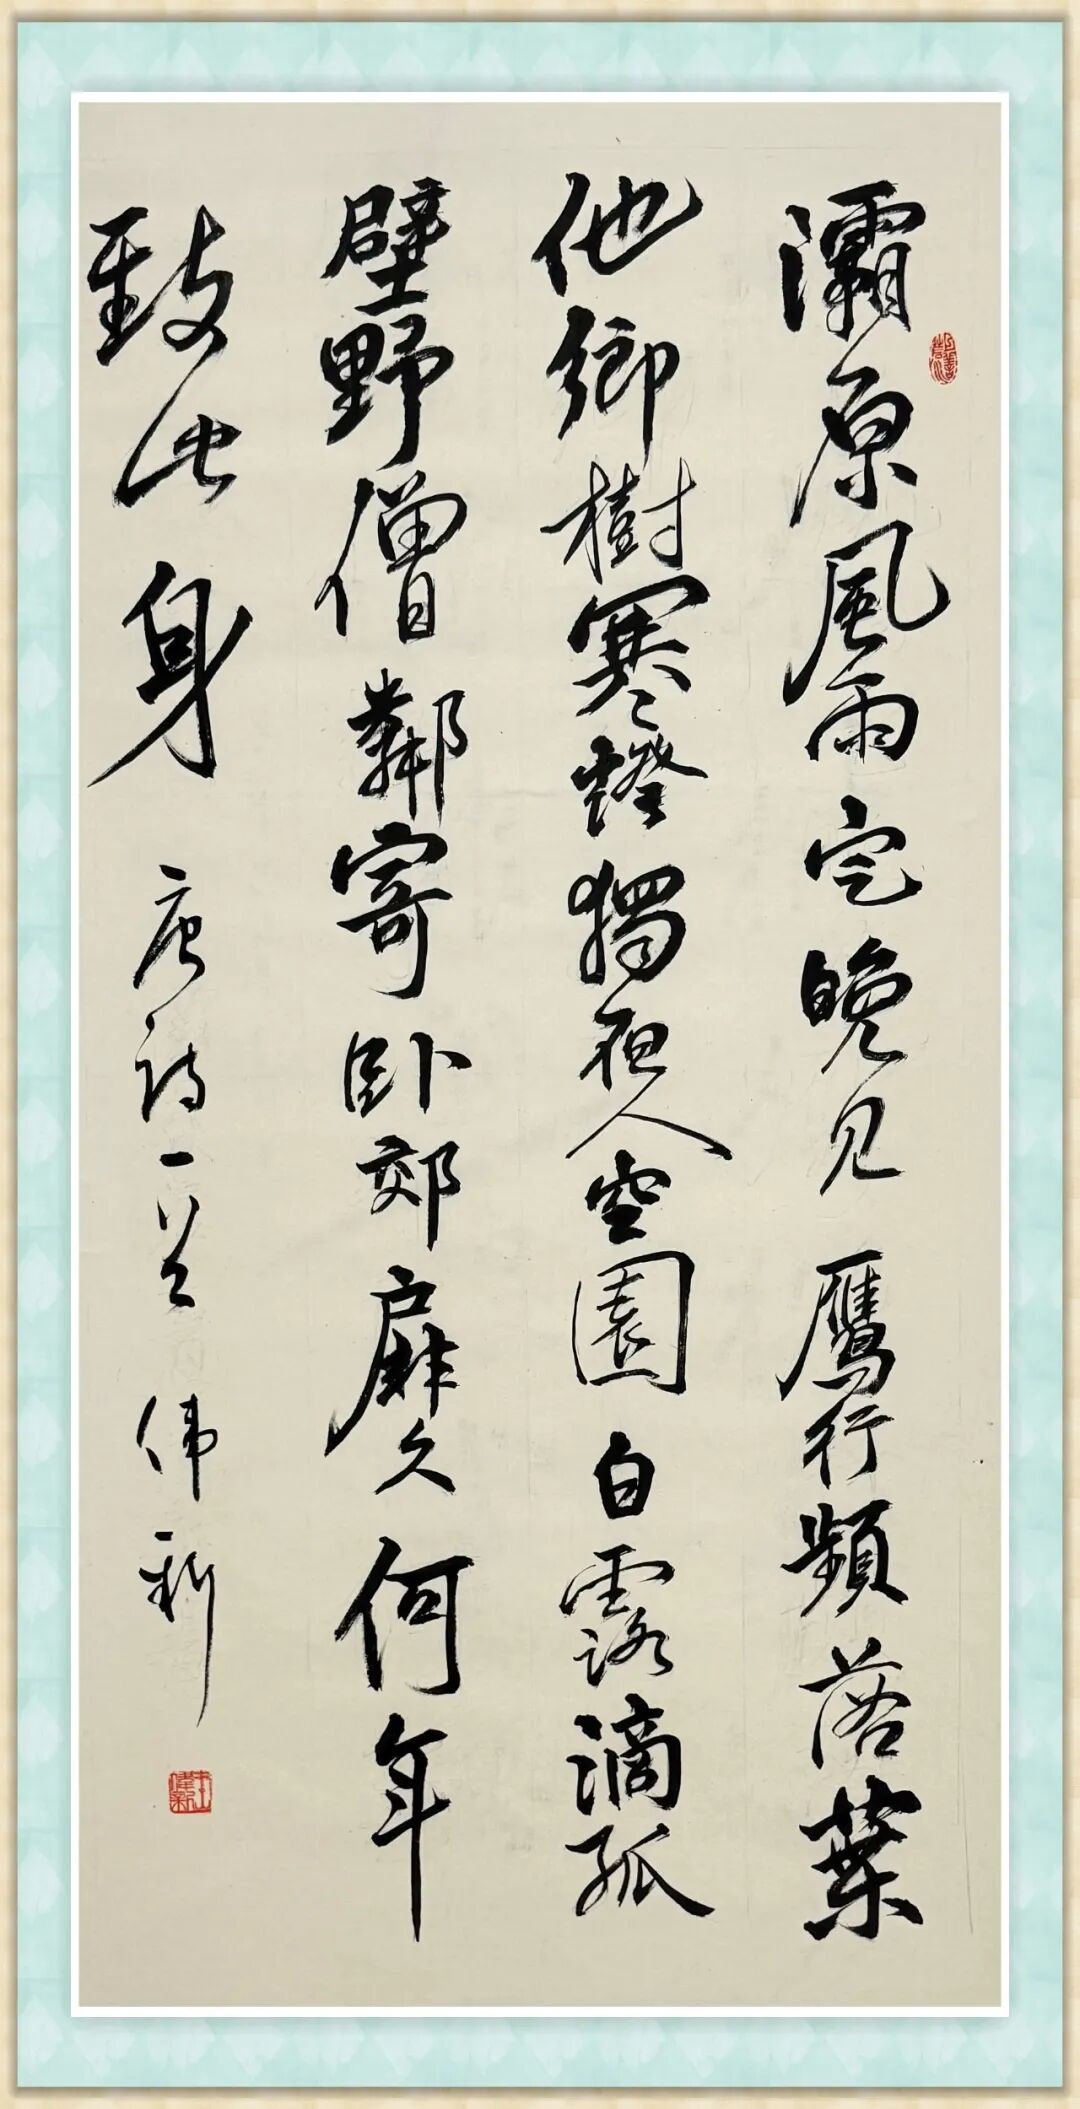 灞原風雨定晚見鷹行頻落葉
他鄉樹寒燈獨夜人空園白露滴孤
壁野僧鄰寄卧郊扉久何年
致此身 唐詩一首 伟新